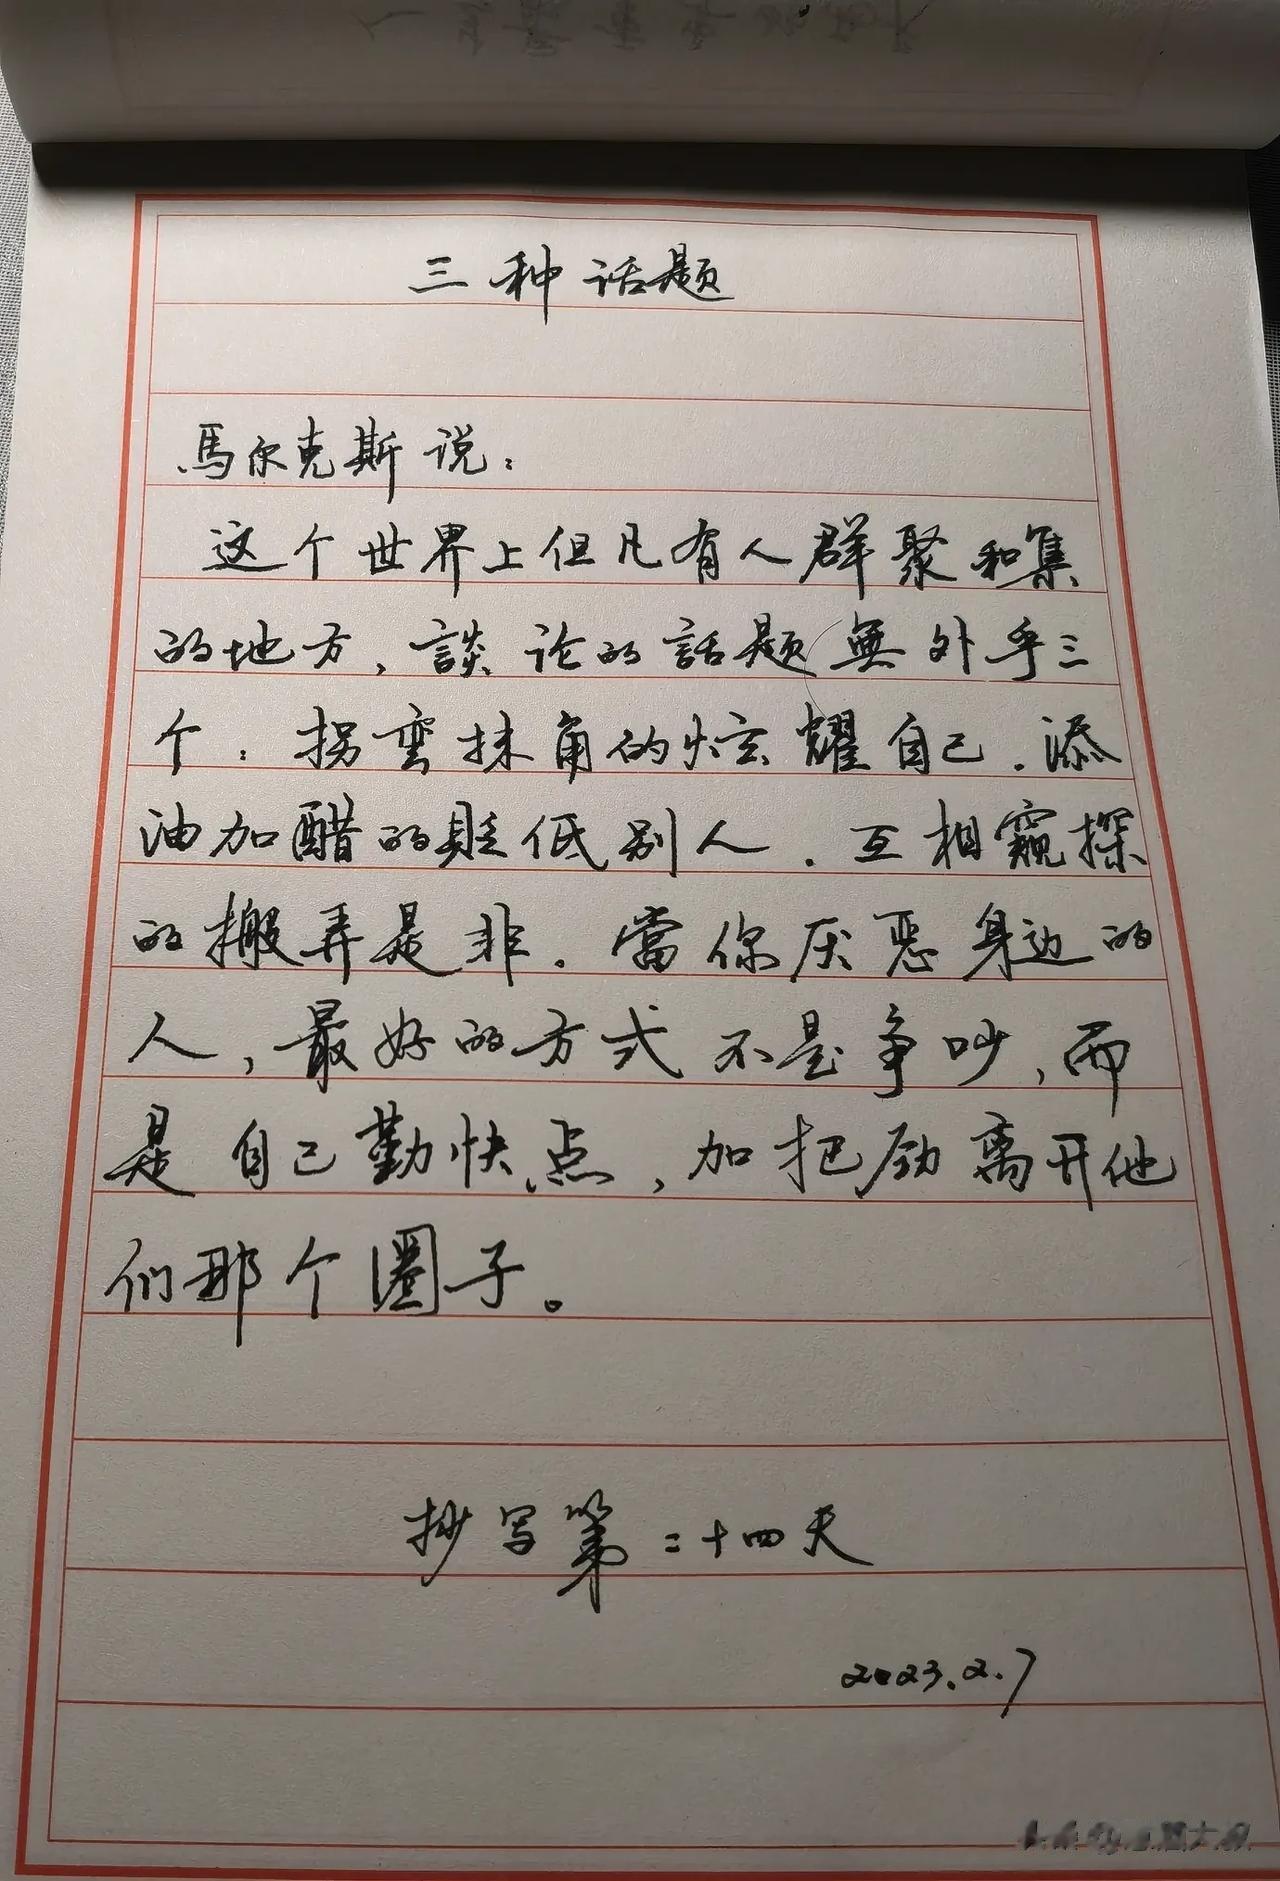 三种话题
馬尔克斯说：
这个世界上但凡有人群聚和集
的地方，談论的話题無外乎三
个：拐弯抹角的炫耀自己.添
油加醋的贬低别人.互相窺探
的搬弄是非.當你厌恶身边的
人,最好的方式不是争吵,而
是自己勤快点,加把劲离开他
们那个圈子。
抄写第二十四天
2023.2.7